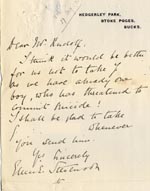 HEDGERLEY PARK,
STOKE POGES,
BUCKS.
Dear Mr Rudolf
I think it would be better
for us not to take
as we have already one
boy, who has threatened to
commit Suicide!
I shall be glad to take
whenever
you send him.
Yrs Sincerely